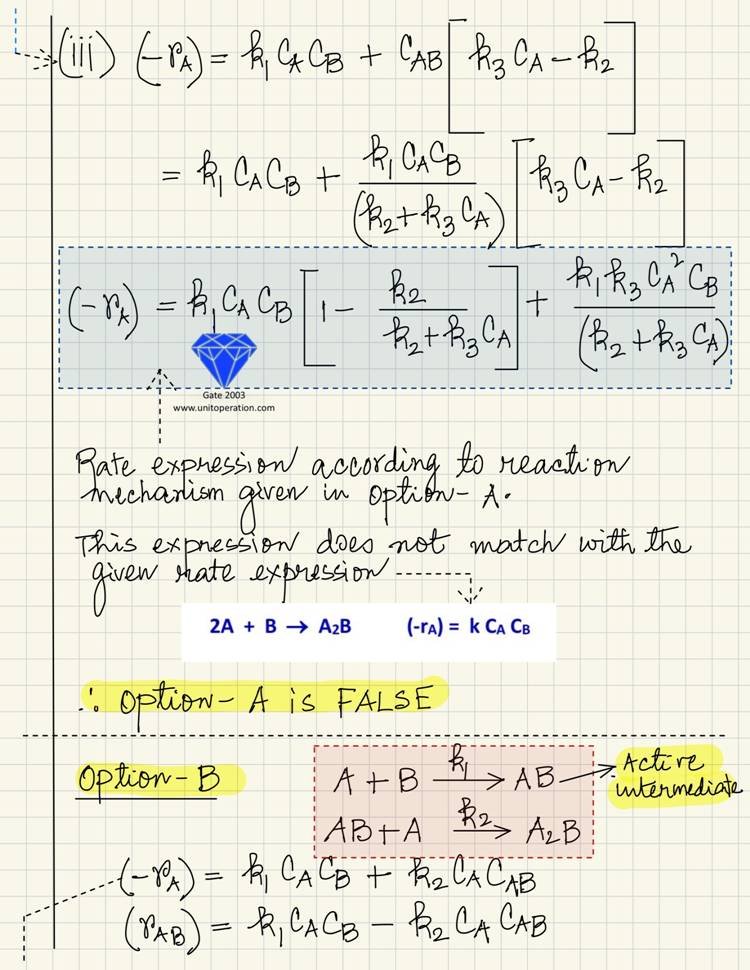 (iii) (-rA) = k₁ CA CB + CAB [k₃ CA - k₂]
= k₁ CA CB + k₁ CA CB / (k₂ + k₃ CA) [k₃ CA - k₂]
(-rA) = k₁ CA CB [1 - k₂ / (k₂ + k₃ CA)] + k₁ k₃ CA² CB / (k₂ + k₃ CA)
Gate 2003
www.unitoperation.com
Rate expression according to reaction
mechanism given in option-A.
This expression does not match with the
given rate expression
2A + B → A2B (-rA) = k CA CB
∴ Option-A is FALSE
Option-B
A + B —k₁→ AB → Active
intermediate
AB + A —k₂→ A₂B
(-rA) = k₁ CA CB + k₂ CA CAB
(rAB) = k₁ CA CB - k₂ CA CAB